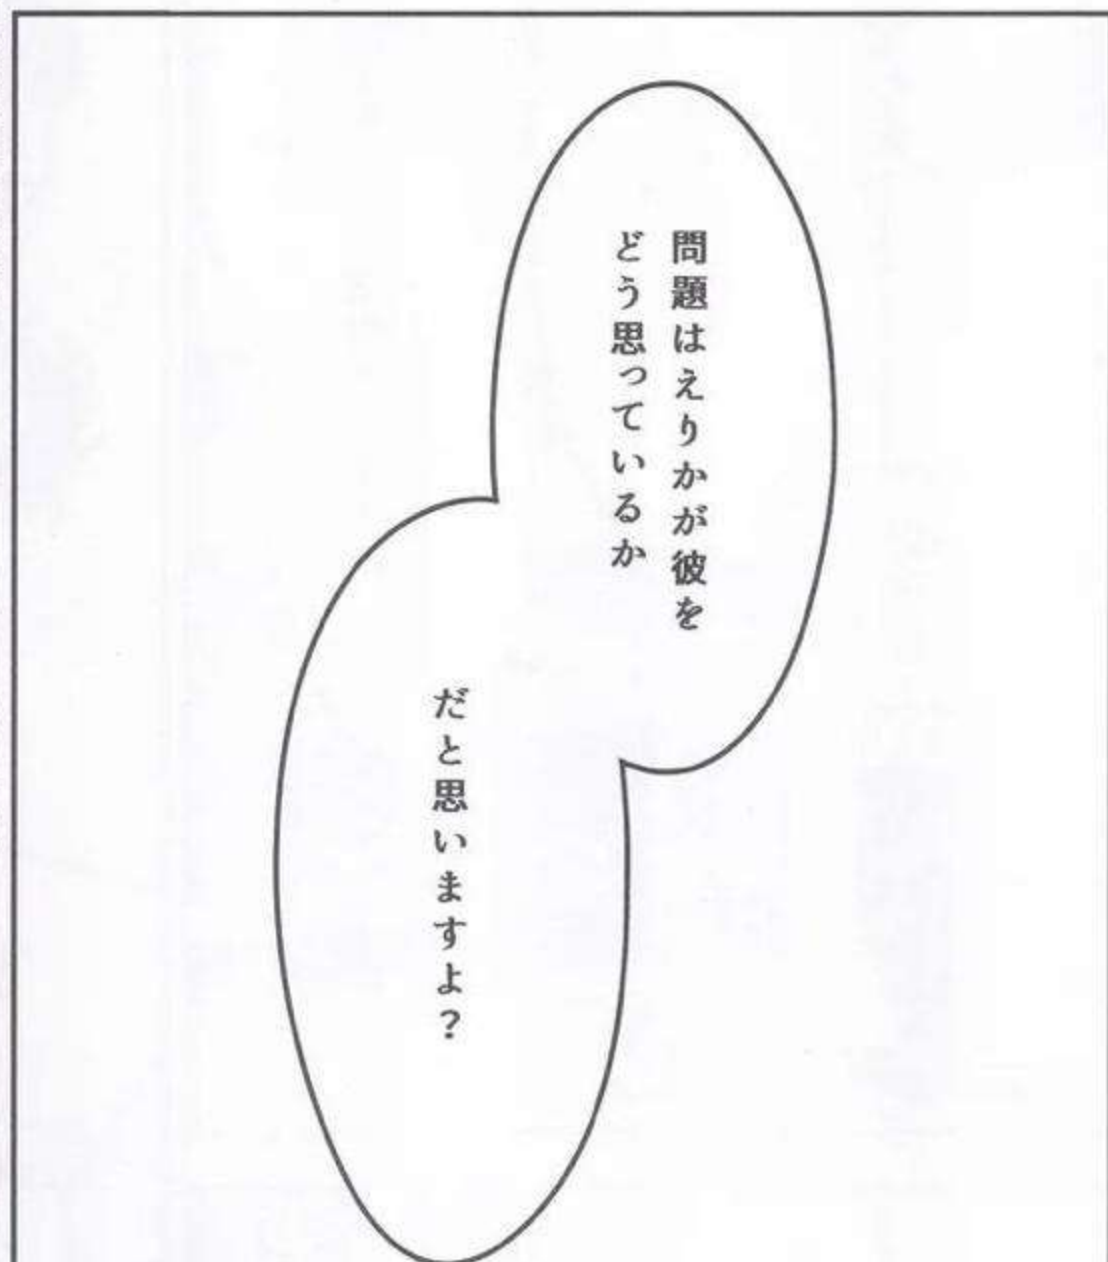 問題はえりかが彼を
どう思っているか
だと思いますよ？